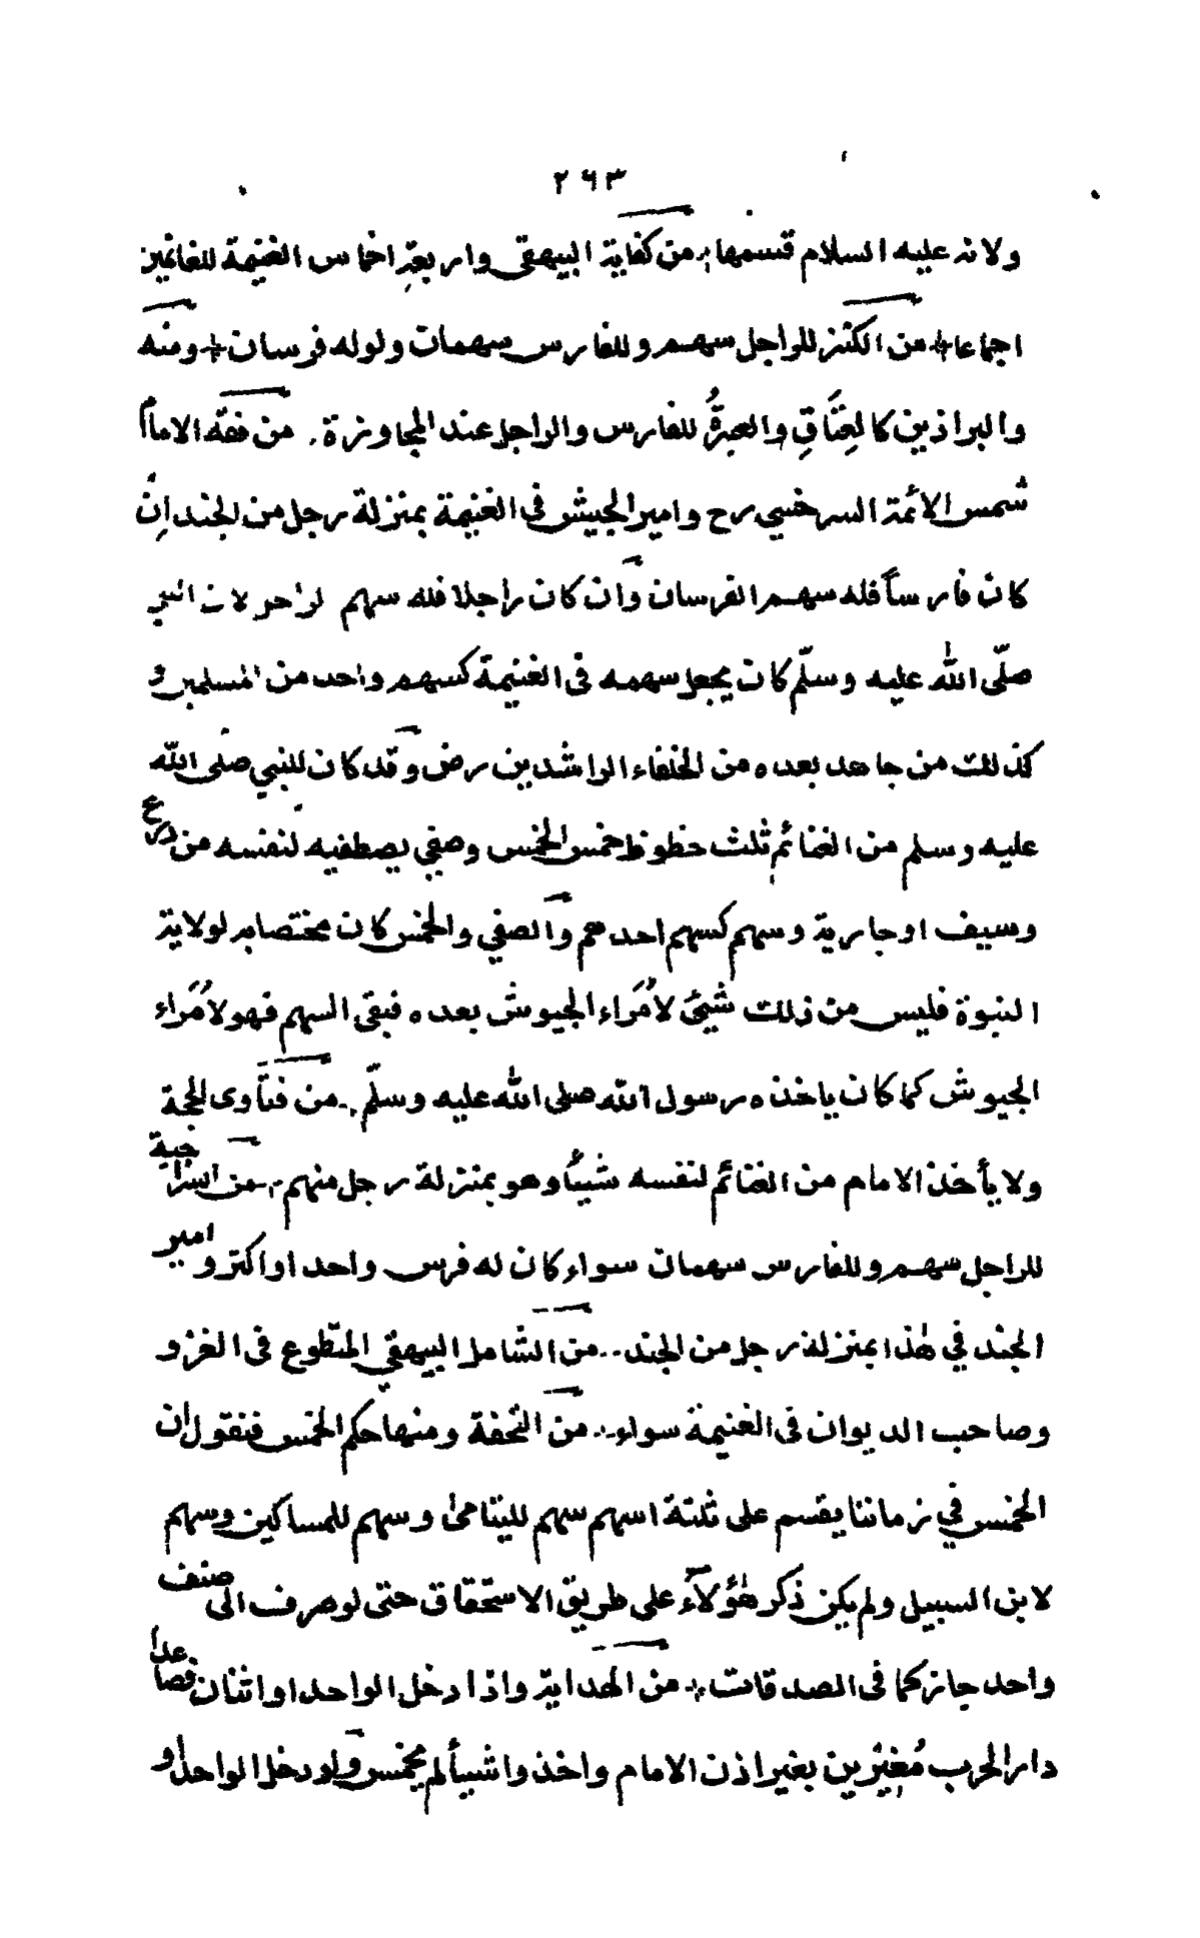 ٢٦٣
ولانه عليه السلام قسمها؛ من كفاية البيهقي واربعة اخماس الغنيمة للغانمين
اجماعا من الكنز للراجل سهم وللفارس سهمان ولوله فرسان ومنه
والبراذين كالعِتَاقِ والعبرةُ للفارس والراجل عند المجاوزة. من فقه الامام
شمس الأئمة السرخسي رح وامير الجيش فى الغنيمة بمنزلة رجل من الجند اِن
كان فارساً فله سهم الفرسان وان كان راجلا فله سهم لان النبي
صلّى الله عليه وسلّم كان يجعل سهمه فى الغنيمة كسهم واحد من المسلمين و
كذلك من جاهد بعده من الخلفاء الراشدين رض وقد كان للنبي صلى الله
عليه وسلم من الغنائم ثلث حظوظ خمس الخمس وصفي يصطفيه لنفسه من درع
وسيف اوجارية وسهم كسهم احدهم والصفي والخمس كان مختصا به لولاية
النبوة فليس من ذلك شيئ لأمَراء الجيوش بعده فبقى السهم فهو لأُمَراء
الجيوش كما كان ياخذه رسول الله صلى الله عليه وسلّم. من فتاوى الحجة
ولا يأخذ الامام من الغنائم لنفسه شيئاً وهو بمنزلة رجل منهم. من السراجية
للراجل سهم وللفارس سهمان سواء كان له فرس واحد او اكثر وامير
الجند في هٰذا بمنزلة رجل من الجند.. من الشامل البيهقي المتطوع فى الغزو
وصاحب الديوان فى الغنيمة سواء. من التحفة ومنها حكم الخمس فنقول ان
الخمس في زماننا يقسم على ثلثة اسهم سهم لليتامىٰ وسهم للمساكين وسهم
لابن السبيل ولم يكن ذكر هٰؤلآء على طريق الاستحقاق حتى لو صرف الى صنف
واحد جاز كما فى الصدقات من الهداية واذا دخل الواحد او اثنان فصاعدا
دار الحرب مُغيرين بغير اذن الامام واخذوا شيئاً لم يخمس ولو دخل الواحد او